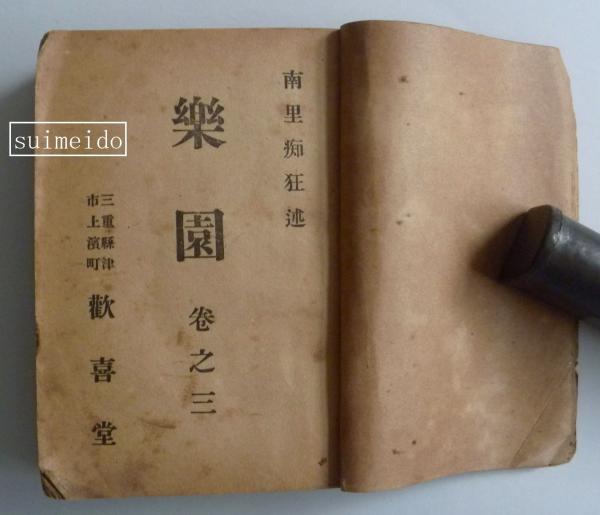 南里痴狂述
樂園 卷之三
三重縣津
市上濱町
歡喜堂
suimeido